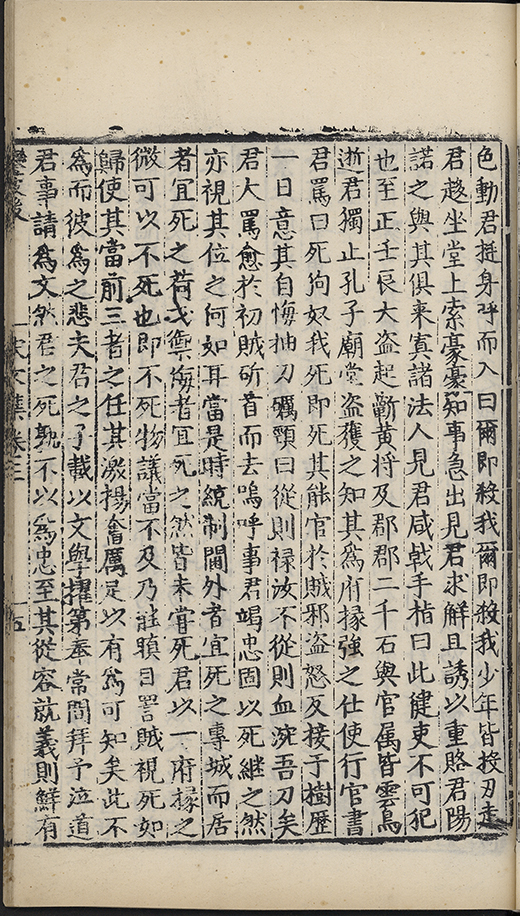 色動君挺身呼而入曰爾即殺我爾即殺我少年皆投刀走
君趍坐堂上索豪豪知事急出見君求解且誘以重賂君陽
諾之與其俱来寘諸法人見君咸戟手指曰此健吏不可犯
也至正壬辰大盗起蘄黄将及郡郡二千石與官属皆雲鳥
逝君獨止孔子廟堂盗獲之知其為府掾強之仕使行官書
君罵曰死狗奴我死即死其能官於賊邪盗怒反接于樹歴
一日意其自悔抽刀礪頸曰從則禄汝不從則血洗吾刀矣
君大罵愈於初賊斫首而去嗚呼事君竭忠固以死継之然
亦視其位之何如耳當是時統制閫外者宜死之專城而居
者宜死之荷戈禦侮者宜死之然皆未甞死君以一府掾之
微可以不死也即不死物議當不及乃瞋目詈賊視死如
歸使其當前三者之任其激揚奮厲足以有為可知矣此不
為而彼為之悲夫君之子載以文學擢第奉常間拜予泣道
君事請為文然君之死孰不以為忠至其從容就義則鮮有
文集卷三
五